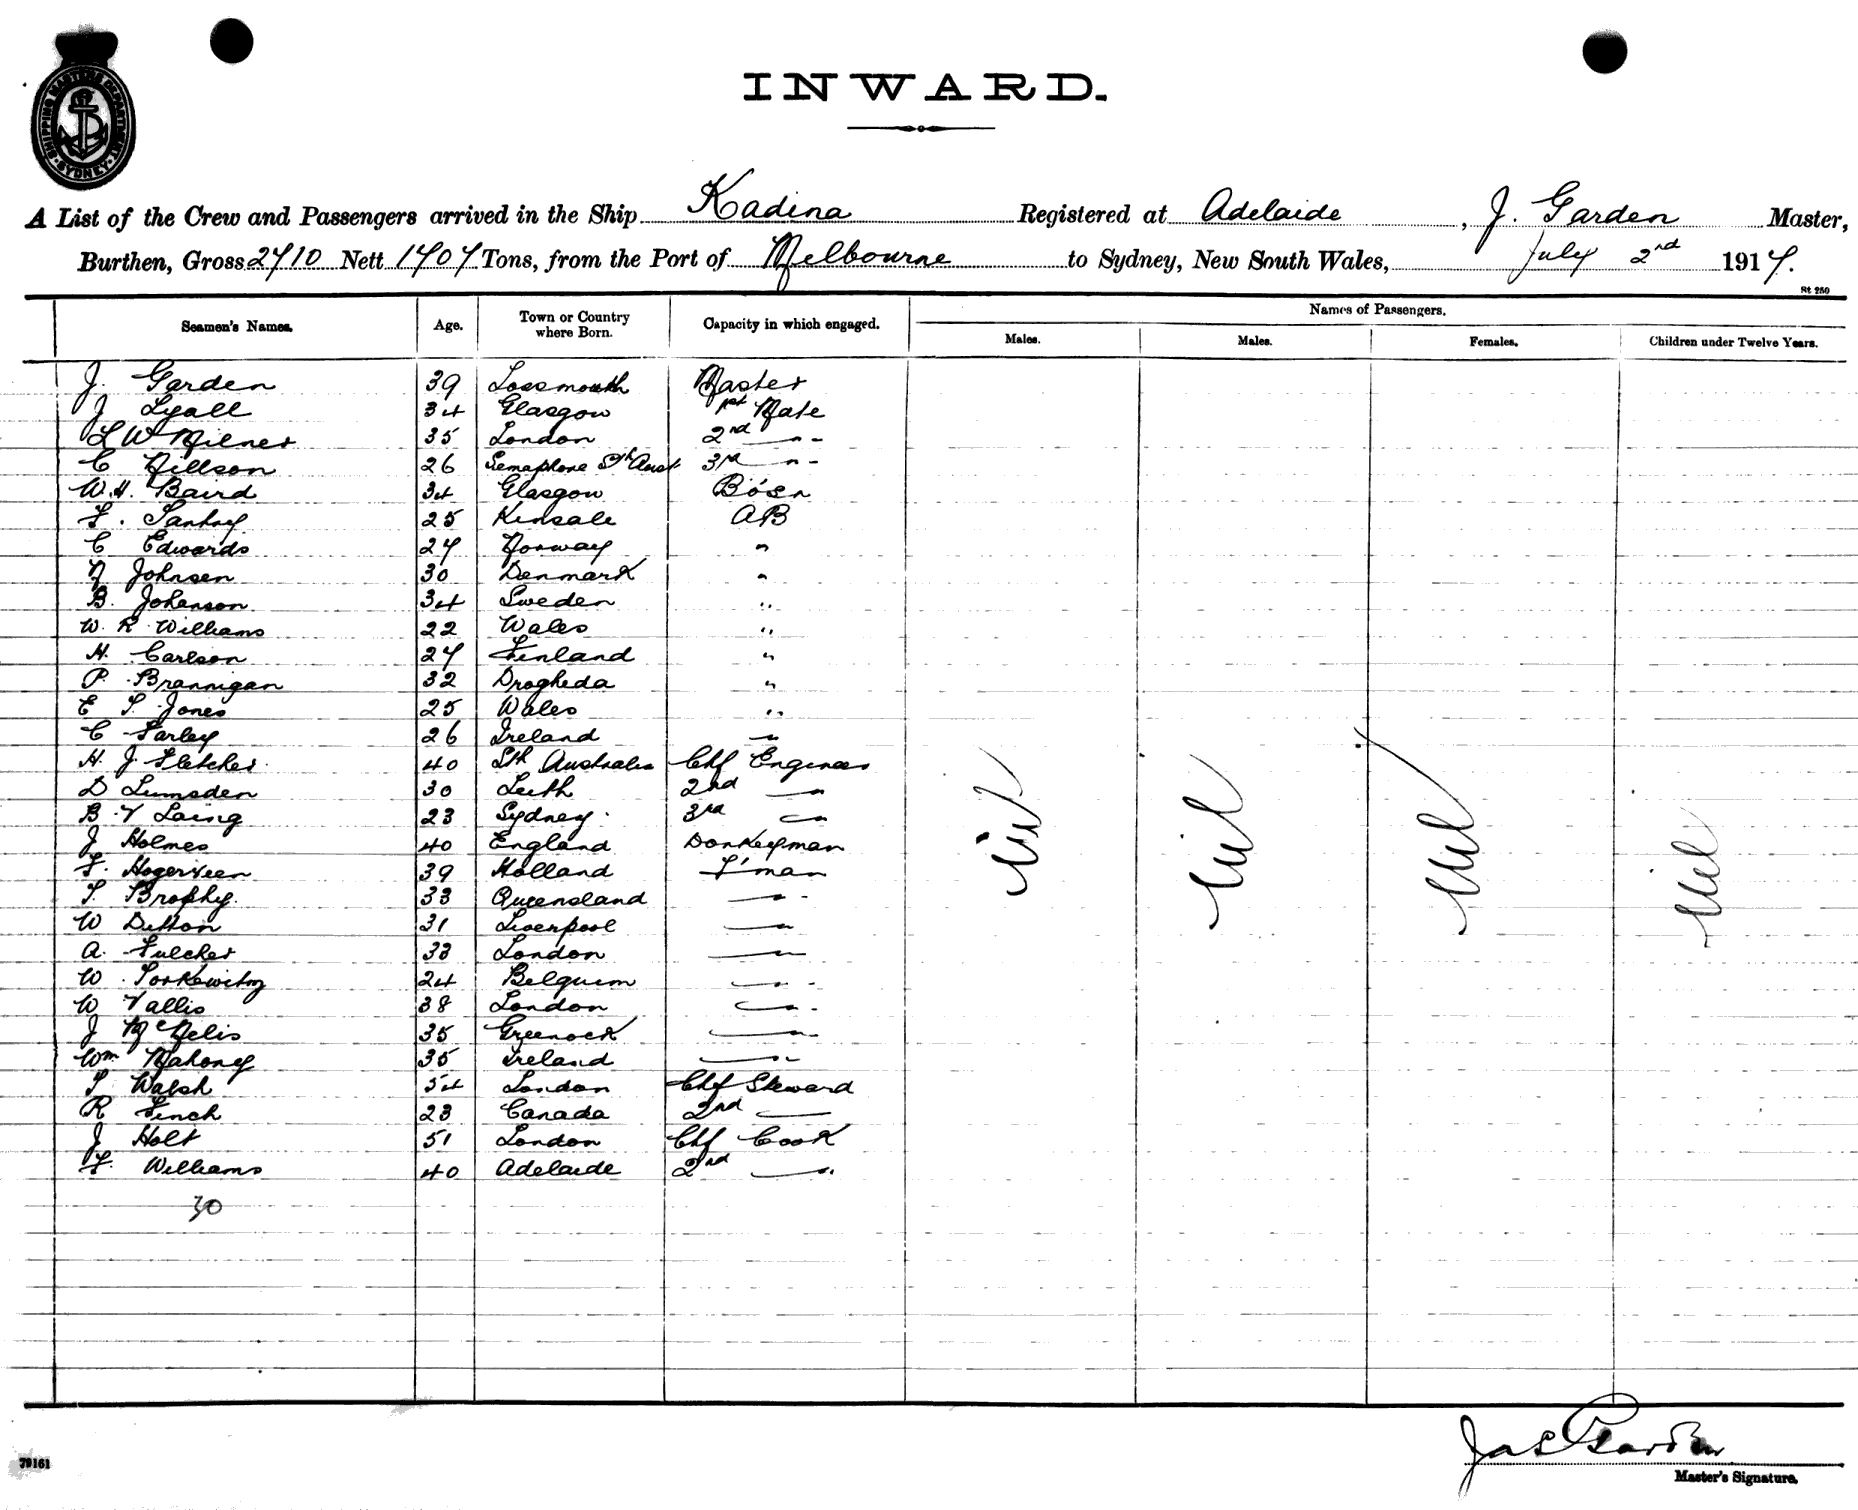 SHIPPING MASTERS DEPARTMENT SYDNEY
INWARD.
A List of the Crew and Passengers arrived in the Ship Kadina Registered at Adelaide, J. Garden Master,
Burthen, Gross 2710 Nett 1707 Tons, from the Port of Melbourne to Sydney, New South Wales, July 2nd 1917.
St 250
Seamen's Names. Age. Town or Country where Born. Capacity in which engaged. Names of Passengers.
Males. Males. Females. Children under Twelve Years.
J. Garden 39 Lossmouth Master
J Lyall 34 Glasgow 1st Mate
L W Milner 35 London 2nd —"-
C Nillson 26 Semaphore Sth Aust 3rd —"-
W.H. Baird 34 Glasgow Bo'sn
25 Kinsale AB
C Edwards 27 Norway "
N Johnsen 30 Denmark "
B. Johanson 34 Sweden "
W. R Williams 22 Wales "
H. Carlson 27 Finland "
P. Brannigan 32 Drogheda "
E T. Jones 25 Wales "
C Farley 26 Ireland "
H. J. Fletcher 40 Sth Australia Chf Engineer
D Lumsden 30 Leith 2nd —"
B. V Laing 23 Sydney 3rd —"
J Holmes 40 England Donkeyman
F. Hogerveen 39 Holland F'man
T. Brophy 33 Queensland —"-
W Dutton 31 Liverpool —"—
A. Fulcher 33 London —"—
W. 24 Belguim —"-
W Vallis 38 London —"-
J McNelis 35 Greenock —"-
Wm Mahoney 35 Ireland —"-
T Walsh 54 London Chf Steward
R Finch 23 Canada 2nd —
J Holt 51 London Chf Cook
F. Williams 40 Adelaide 2nd —"
30
nil nil nil nil
Jas Garden
Master's Signature.
79161